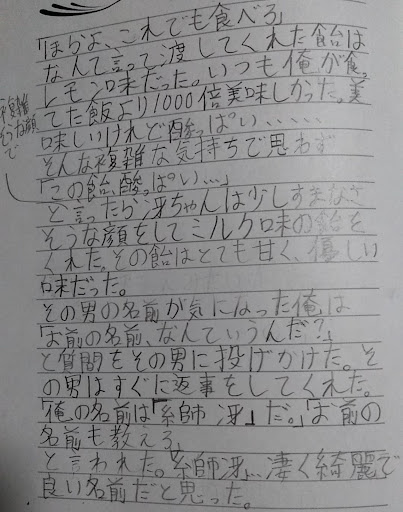 「ほらよ、これでも食べろ」
なんて言って渡してくれた飴は
レモン味だった。いつも俺が食っ
てた飯より1000倍美味しかった。美
味しいけれど酸っぱい、、、、、
そんな複雑な気持ちで思わず
「この飴、酸っぱい…」
と言ったら冴ちゃんは少しすまなさ
そうな顔をしてミルク味の飴を
くれた。その飴はとても甘く、優しい
味だった。
その男の名前が気になった俺は
「お前の名前、なんていうんだ？」
と質問をその男に投げかけた。そ
の男はすぐに返事をしてくれた。
「俺の名前は「糸師 冴」だ。」「お前の
名前も教えろ」
と言われた。「糸師冴」…凄く綺麗で
良い名前だと思った。
そうな顔
で